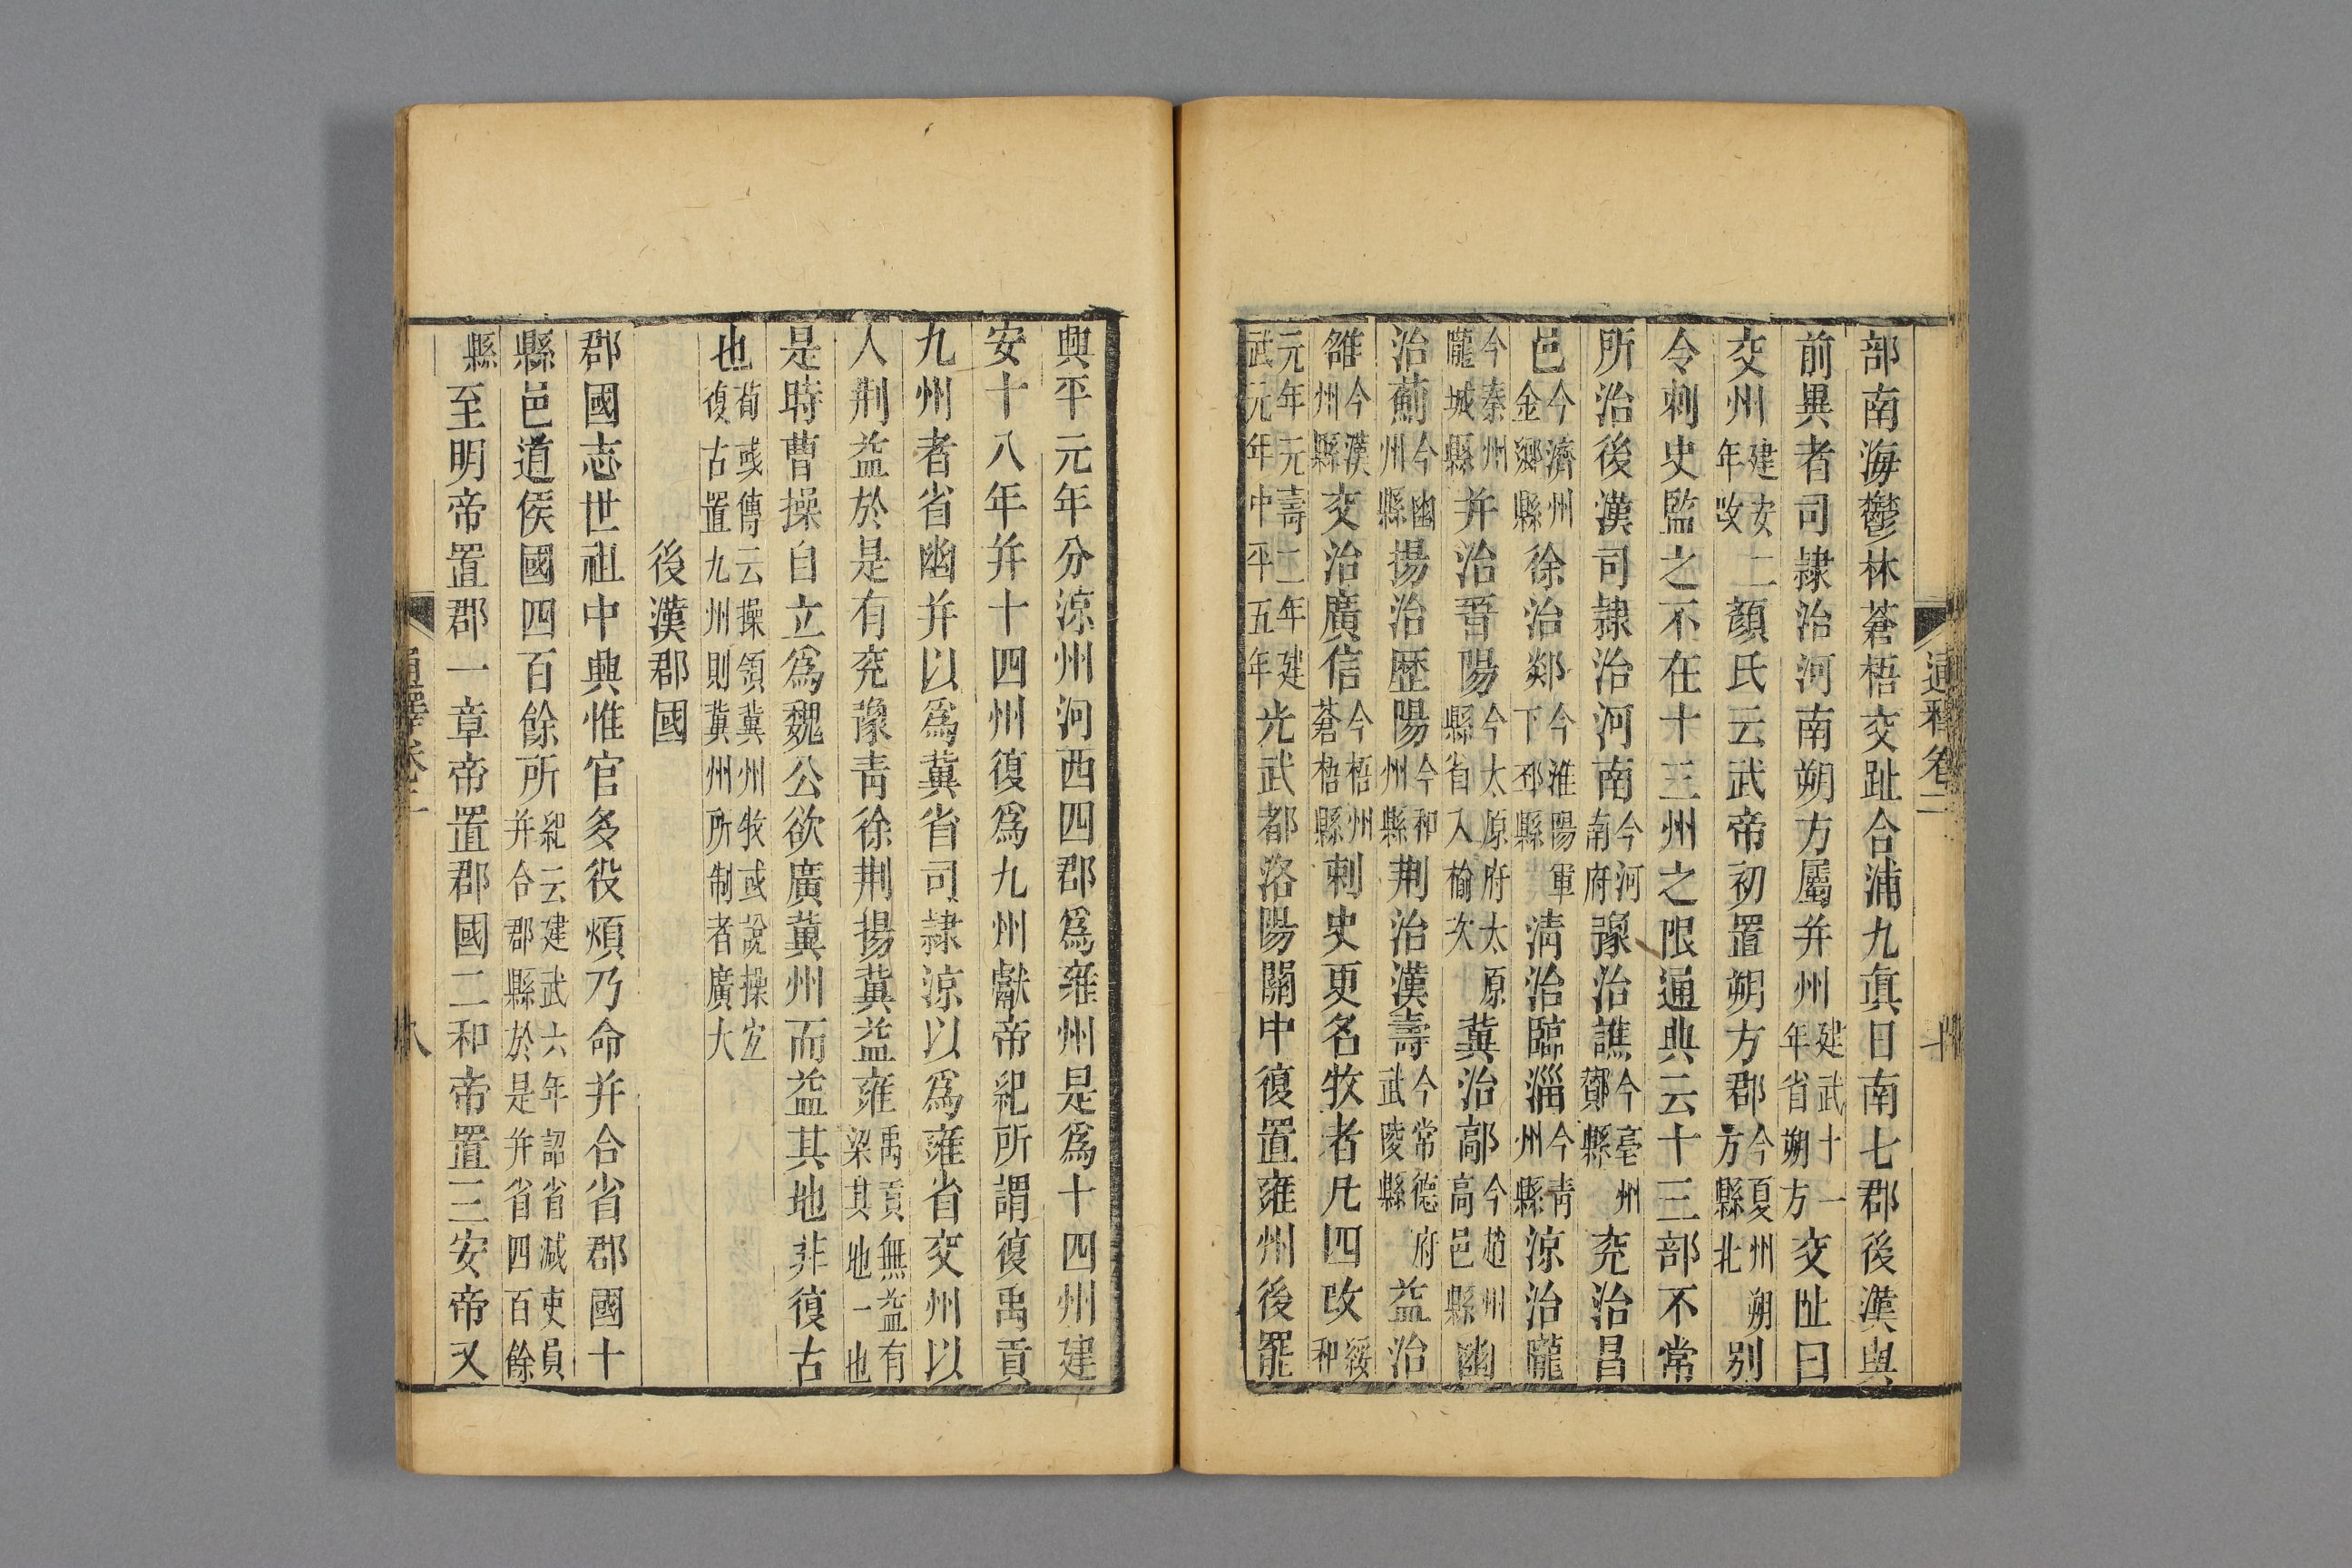 通釋卷二
部南海鬱林蒼梧交趾合浦九真日南七郡後漢與
前異者司隷治河南朔方屬并州建武十一年省朔方交阯曰
交州建安二年改顔氏云武帝初置朔方郡今夏州朔方縣北别
令刺史監之不在十三州之限通典云十三部不常
所治後漢司隷治河南今河南府豫治譙今亳州酇縣兖治昌
邑今濟州金鄉縣徐治郯今淮陽軍下邳縣淸治臨淄今靑州縣涼治隴
今秦州隴城縣并治晉陽今太原府太原縣省入榆次冀治鄗今趙州高邑縣幽
治薊今幽州縣揚治歷陽今和州縣荆治漢壽今常德府武陵縣益治
雒今漢州縣交治廣信今梧州蒼梧縣刺史更名牧者凡四改綏和
元年元壽二年建武元年中平五年光武都洛陽關中復置雍州後罷
興平元年分涼州河西四郡爲雍州是爲十四州建
安十八年并十四州復爲九州獻帝紀所謂復禹貢
九州者省幽并以爲冀省司隷涼以爲雍省交州以
入荆益於是有兖豫靑徐荆揚冀益雍禹貢無益有梁其地一也
是時曹操自立爲魏公欲廣冀州而益其地非復古
也荀彧傳云操領冀州牧或說操宜復古置九州則冀州所制者廣大
後漢郡國
郡國志世祖中興惟官多役煩乃命并合省郡國十
縣邑道侯國四百餘所紀云建武六年詔省減吏員并合郡縣於是并省四百餘
縣至明帝置郡一章帝置郡國二和帝置三安帝又
八